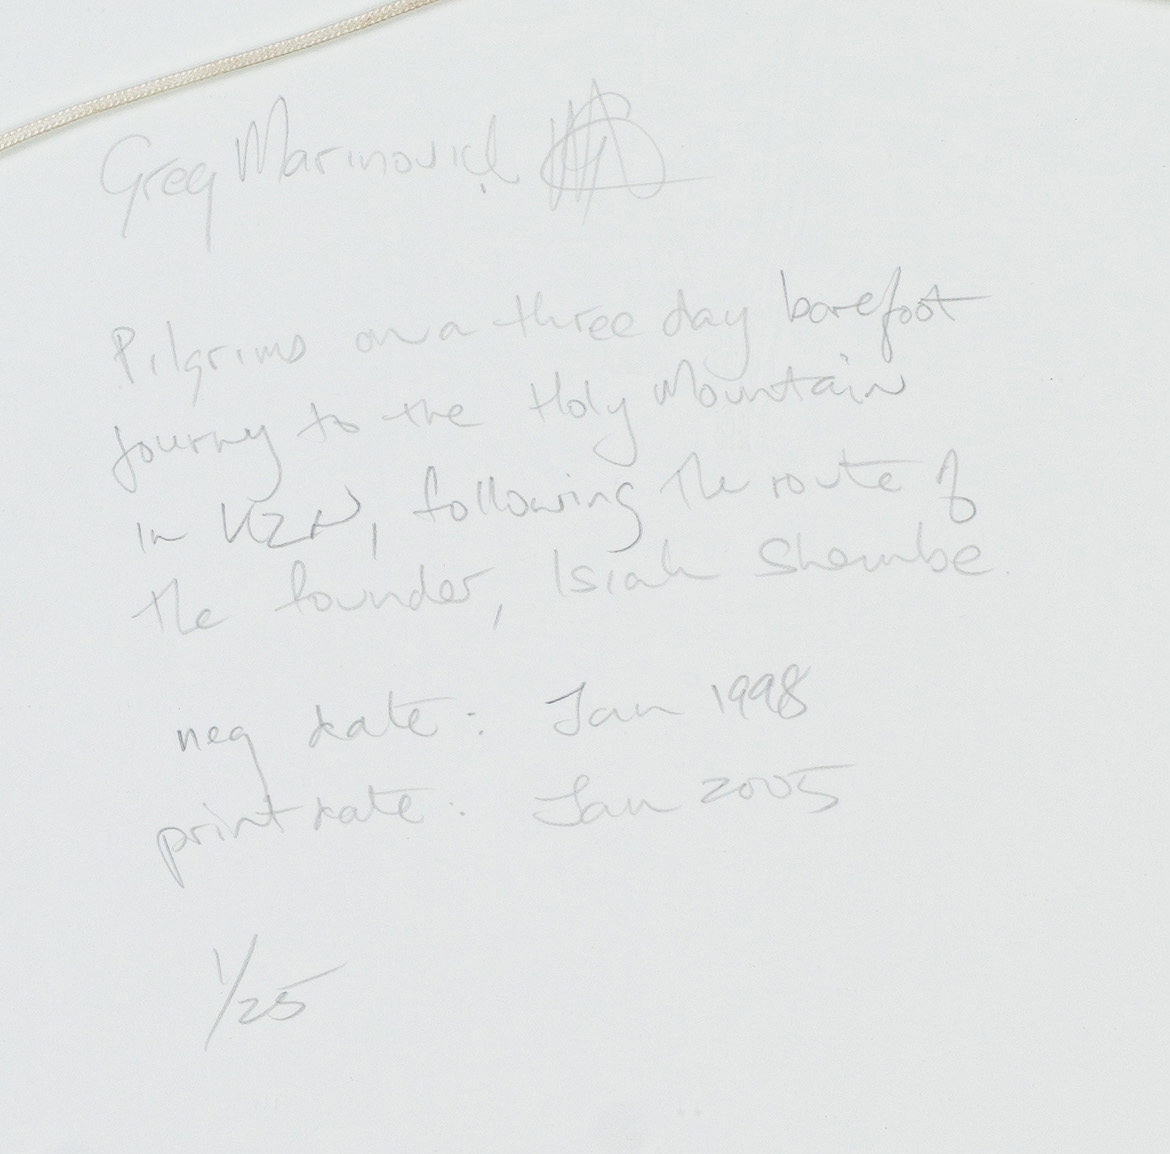 Greg Marinovich
Pilgrims on a three day barefoot
journey to the Holy Mountain
in KZN, following the route of
the founder, Isiah Shembe.
neg date: Jan 1998
print date: Jan 2005
1/25